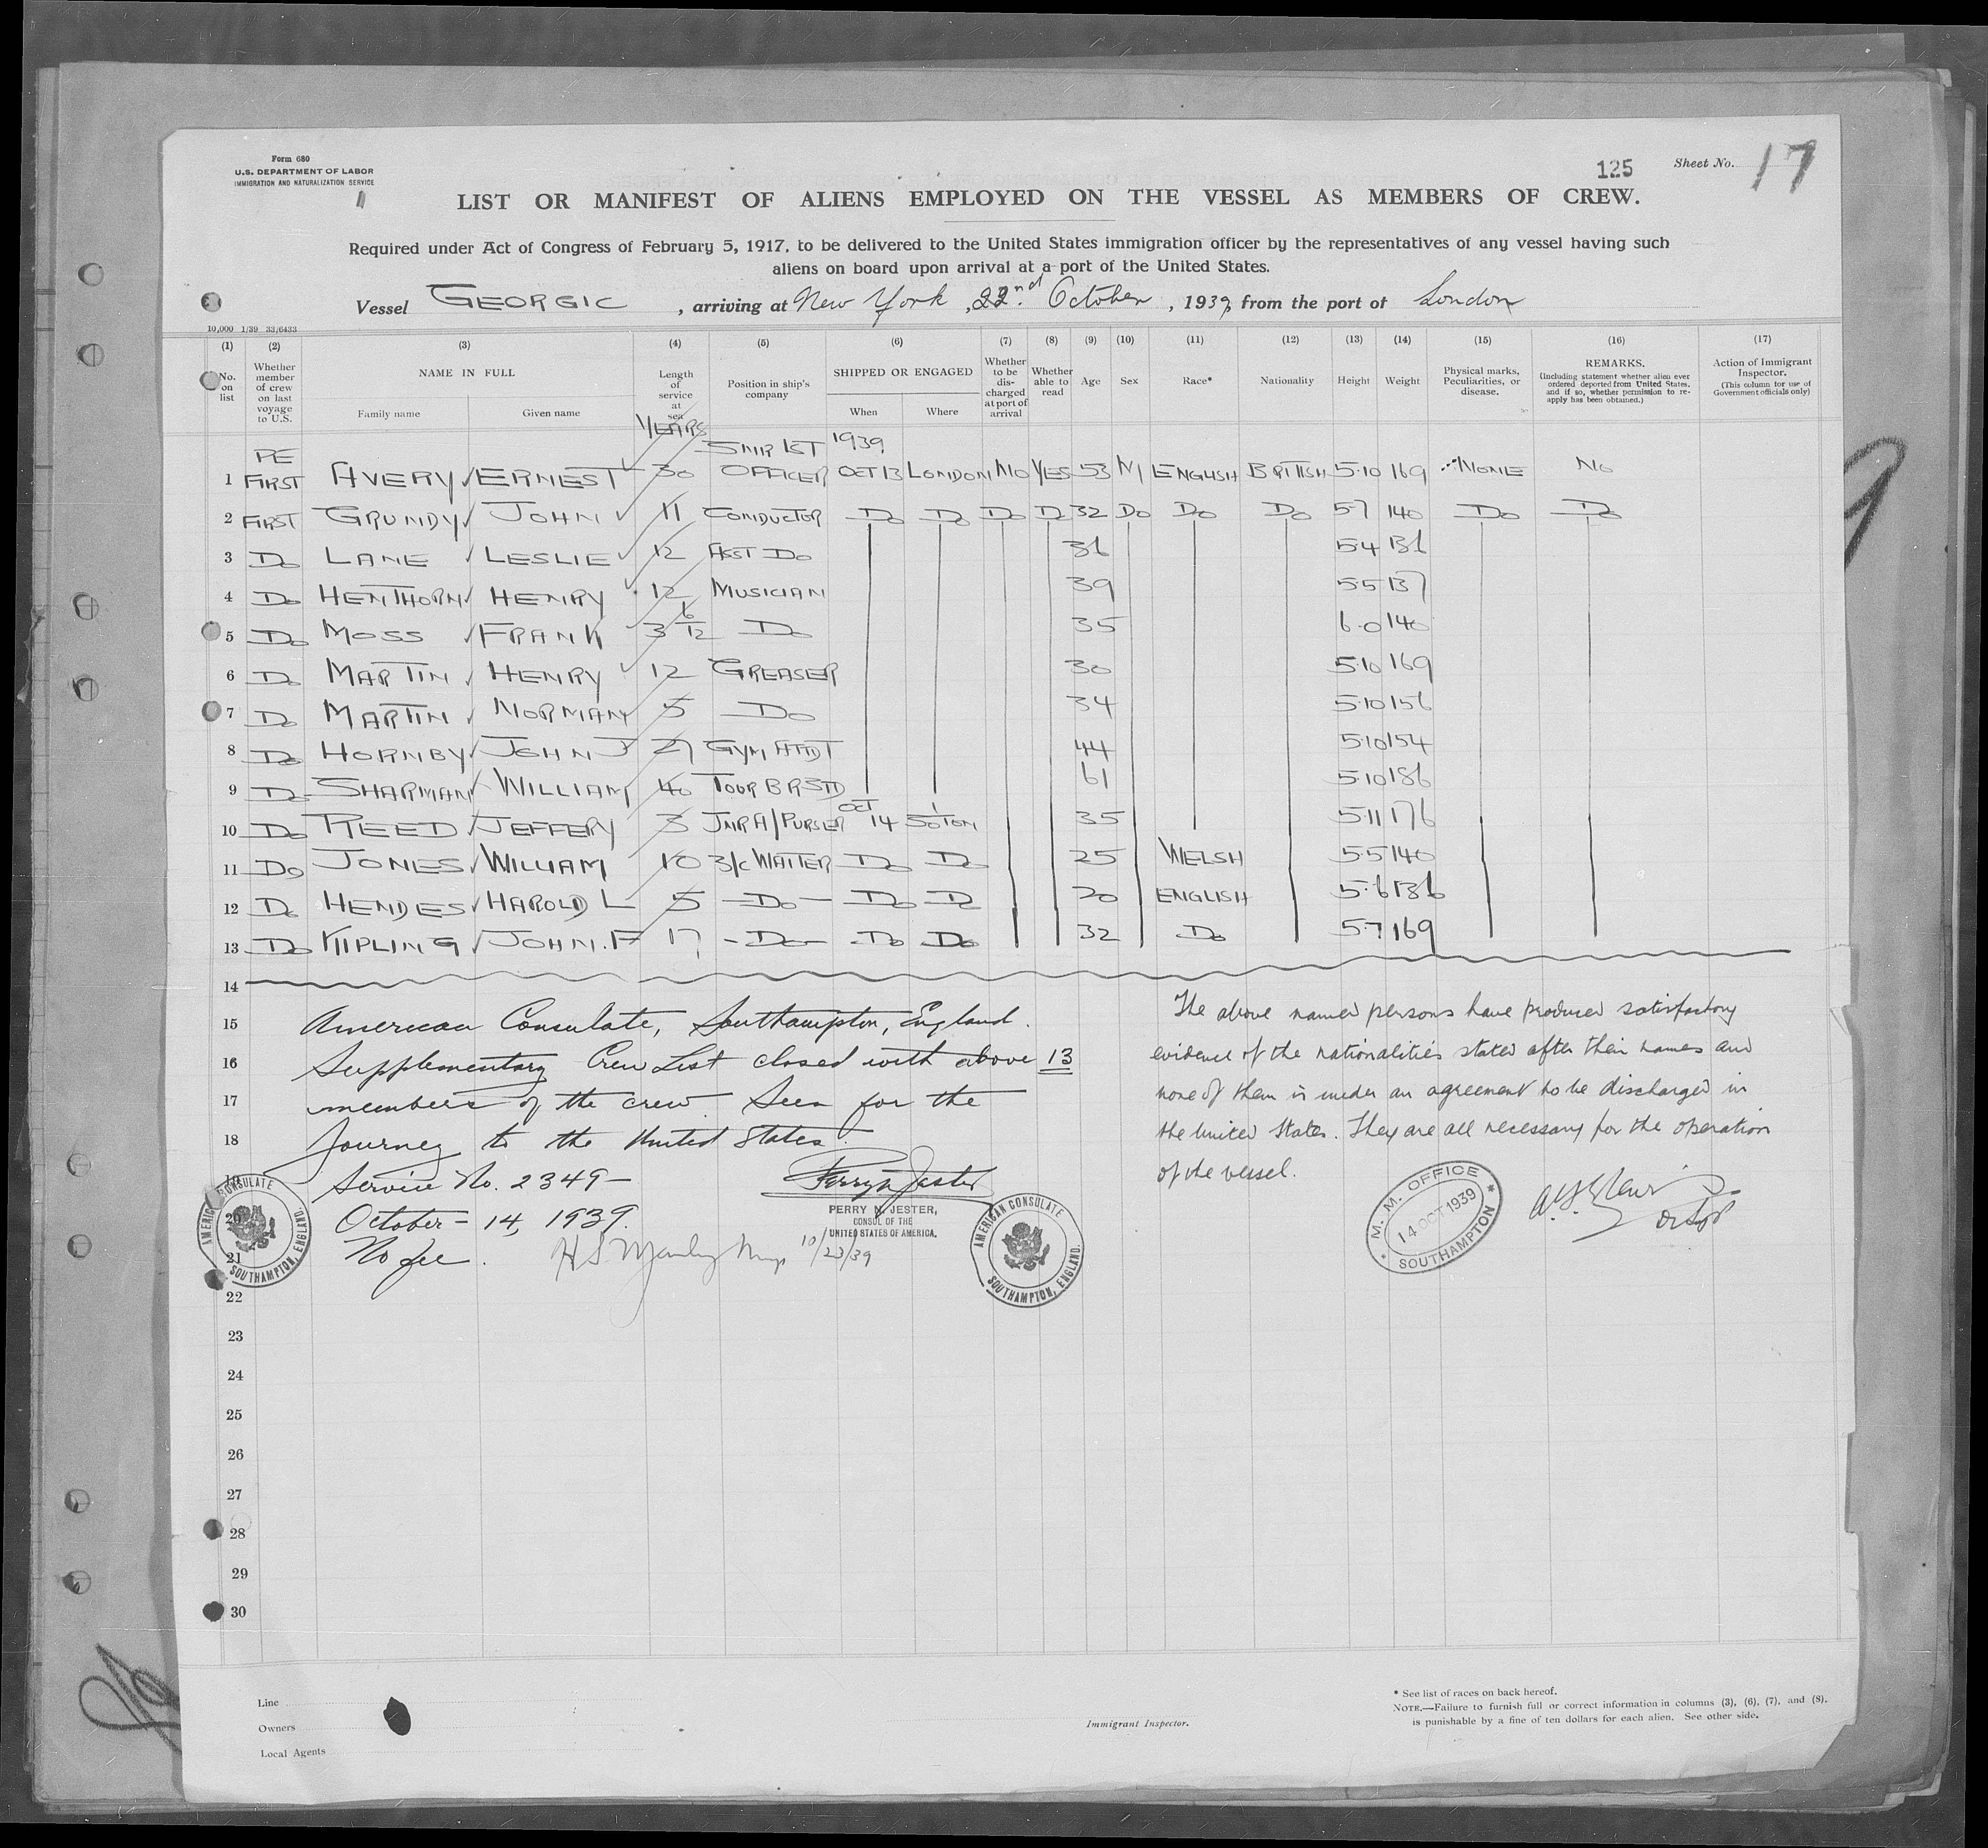 Form 680
U.S. DEPARTMENT OF LABOR
IMMIGRATION AND NATURALIZATION SERVICE
125 Sheet No. 17
LIST OR MANIFEST OF ALIENS EMPLOYED ON THE VESSEL AS MEMBERS OF CREW.
Required under Act of Congress of February 5, 1917, to be delivered to the United States immigration officer by the representatives of any vessel having such
aliens on board upon arrival at a port of the United States.
Vessel GEORGIC, arriving at New York, 22nd October, 1939, from the port of London
10,000 1/39 33/6433
(1) (2) (3) (4) (5) (6) (7) (8) (9) (10) (11) (12) (13) (14) (15) (16) (17)
No. on list
Whether member of crew on last voyage to U.S.
NAME IN FULL
Family name Given name
Length of service at sea
YEARS
Position in ship's company
SHIPPED OR ENGAGED
When Where
Whether to be discharged at port of arrival
Whether able to read
Age Sex Race* Nationality Height Weight
Physical marks, Peculiarities, or disease.
REMARKS.
(Including statement whether alien ever ordered deported from United States, and if so, whether permission to reapply has been obtained.)
Action of Immigrant Inspector.
(This column for use of Government officials only)
1939
1 RE FIRST AVERY ERNEST 30 SNR 1ST OFFICER OCT 13 LONDON NO YES 53 M ENGLISH BRITISH 5·10 169 NONE NO
2 FIRST GRUNDY JOHN 11 CONDUCTOR Do Do Do Do 32 Do Do Do 5·7 140 Do Do
3 Do LANE LESLIE 12 ASST Do 36 5·4 136
4 Do HENTHORN HENRY 12 MUSICIAN 39 5·5 137
5 Do MOSS FRANK 3 6/12 Do 35 6·0 140
6 Do MARTIN HENRY 12 GREASER 30 5·10 169
7 Do MARTIN NORMAN 5 Do 34 5·10 156
8 Do HORNBY JOHN J 27 GYM ATTDT 44 5·10 154
9 Do SHARMAN WILLIAM 40 TOUR B R STD 61 5·10 186
10 Do REED JEFFERY 3 JNR A/PURSER OCT 14 SO'TON 35 5·11 176
11 Do JONES WILLIAM 10 3/C WAITER Do Do 25 WELSH 5·5 140
12 Do HENDES HAROLD L 5 Do Do Do 20 ENGLISH 5·6 136
13 Do KIPLING JOHN. F 17 Do Do Do 32 Do 5·7 169
14
15 American Consulate, Southampton, England.
16 Supplementary Crew List closed with above 13
17 members of the crew. Seen for the
18 journey to the United States.
19 Service No. 2349-
20 October - 14, 1939.
21 No fee.
Perry N Jester
PERRY N. JESTER,
CONSUL OF THE
UNITED STATES OF AMERICA.
10/23/39
AMERICAN CONSULATE
SOUTHAMPTON, ENGLAND.
AMERICAN CONSULATE
SOUTHAMPTON, ENGLAND.
The above named persons have produced satisfactory
evidence of the nationalities stated after their names and
none of them is under an agreement to be discharged in
the United States. They are all necessary for the operation
of the vessel.
M. M. OFFICE
14 OCT 1939
SOUTHAMPTON
22
23
24
25
26
27
28
29
30
Line
Owners
Local Agents
Immigrant Inspector.
* See list of races on back hereof.
NOTE.—Failure to furnish full or correct information in columns (3), (6), (7), and (8),
is punishable by a fine of ten dollars for each alien. See other side.